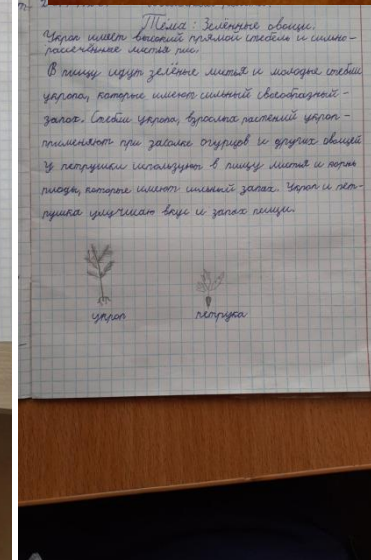 Тема: Зеленные овощи.
Укроп имеет высокий прямой стебель и сильно-
рассечённые листья рис.
В пищу идут зелёные листья и молодые стебли
укропа, которые имеют сильный своеобразный -
запах. Стебли укропа, взрослых растений укроп -
применяют при засолке огурцов и других овощей
У петрушки используют в пищу листья и корне
плоды, которые имеют сильный запах. Укроп и пет-
рушка улучшают вкус и запах пищи.
укроп петрука